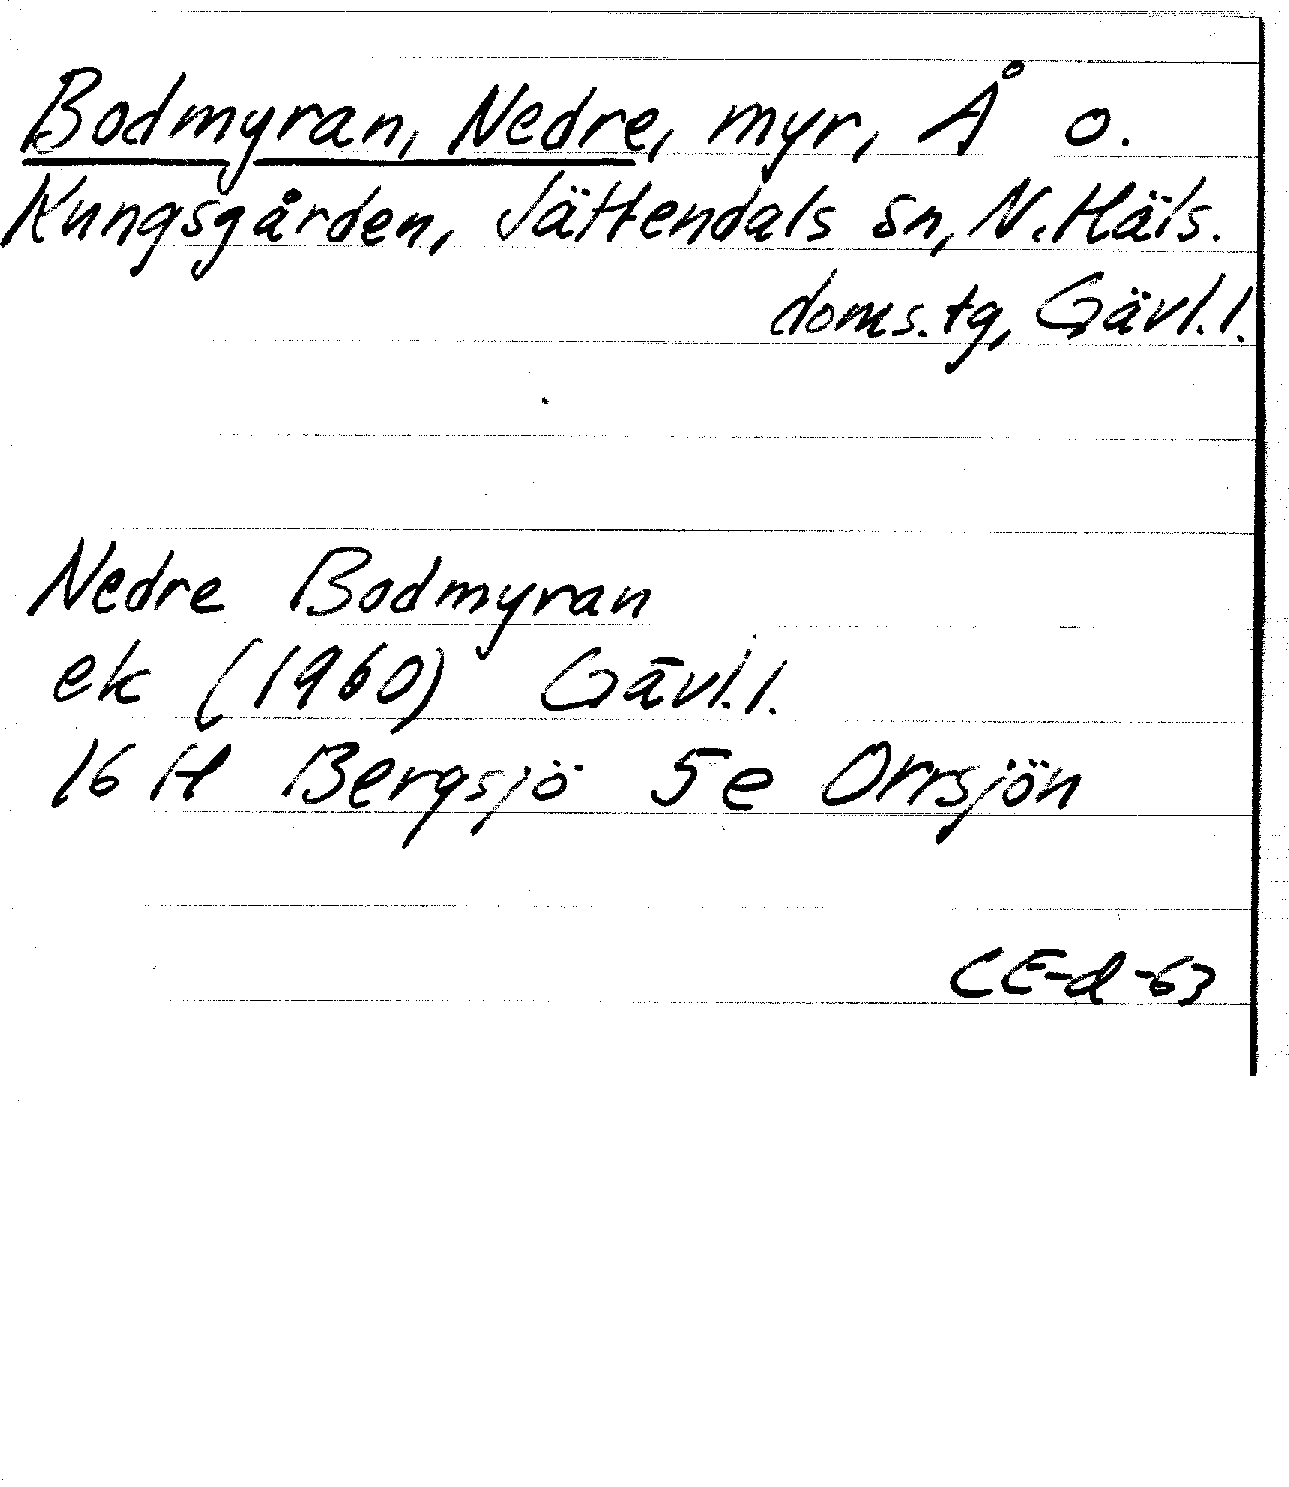 Bodmyran, Nedre, myr, Å o.
Kungsgården, Jättendals sn, N. Häls.
doms.tg, Gävl.l.
Nedre Bodmyran
ek (1960) Gävl.l.
16 H Bergsjö 5e Orrsjön
CE-d-63